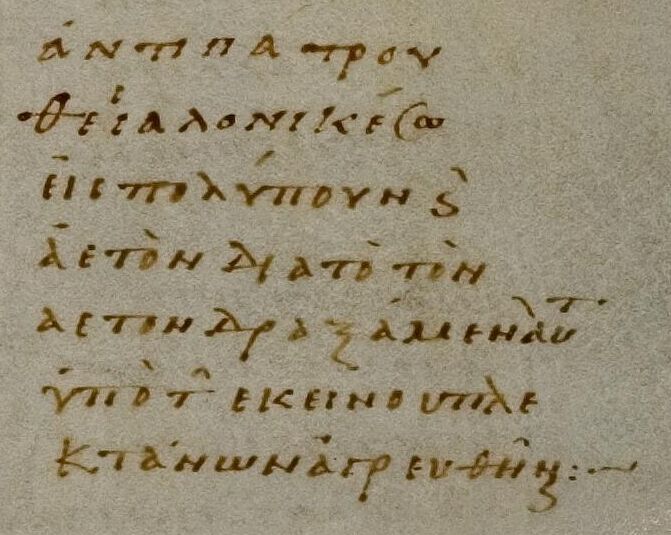 ἀντιπατρου
θεσσαλονικέω
εἰς πολύπουν ϗ
ἀετὸν διὰ τὸ τὸν
αετον δραξάμεν αὐτ
ὑπὸ τ̑ εκεινου πλε
κτάνων ἀγρευθῆν :~